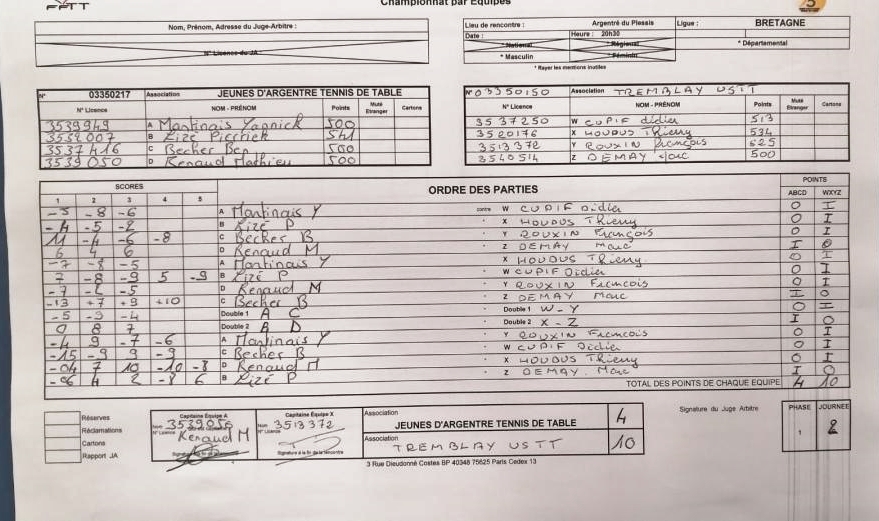 FFTT
Championnat par Equipes
Nom, Prénom, Adresse du Juge-Arbitre :
N° Licence du JA :
Lieu de rencontre : Argentré du Plessis Ligue : BRETAGNE
Date : Heure : 20h30
* National * Régional * Départemental
* Masculin * Féminin
* Rayer les mentions inutiles
N° 03350217 Association JEUNES D'ARGENTRE TENNIS DE TABLE
N° Licence NOM - PRÉNOM Points Muté Etranger Cartons
3539949 A Martinais Yannick 500
3552007 B Lizé Pierrick 541
3537416 C Becher Ben 500
3539050 D Renaud Mathieu 500
N° 03350150 Association TREMBLAY USTT
N° Licence NOM - PRÉNOM Points Muté Etranger Cartons
3537250 W CUPIF didier 513
3520176 X HOUDUS Thierry 534
3513372 Y ROUXIN François 625
3540514 Z DEMAY Marc 500
SCORES ORDRE DES PARTIES POINTS
1 2 3 4 5 ABCD WXYZ
-5 -8 -6 A Martinais Y contre W CUPIF Didier 0 I
-4 -5 -2 B Lizé P X HOUDUS Thierry 0 I
11 -4 -6 -8 C Becher B Y ROUXIN François 0 I
6 4 6 D Renaud M Z DEMAY Marc I 0
-7 -8 -5 A Martinais Y X HOUDUS Thierry 0 I
7 -8 -9 5 -9 B Lizé P W CUPIF Didier 0 I
-7 -2 -5 D Renaud M Y ROUXIN Francois 0 I
-13 +7 +9 +10 C Becher B Z DEMAY Marc I 0
-5 -9 -4 Double 1 A C Double 1 W-Y 0 I
0 8 7 Double 2 A D Double 2 X-Z I 0
-4 9 -7 -6 A Martinais Y Y ROUXIN Francois 0 I
-15 -9 9 -9 C Becher B W CUPIF Didier 0 I
-04 7 10 -10 -8 D Renaud M X HOUDUS Thierry 0 I
-06 4 2 -8 6 B Lizé P Z DEMAY Marc I 0
TOTAL DES POINTS DE CHAQUE EQUIPE 4 10
Réserves
Réclamations
Cartons
Rapport JA
Capitaine Équipe A
Nom
N° Licence
Renaud M
Signature à la fin de la rencontre
Capitaine Équipe X
Nom 3513372
N° Licence
Signature à la fin de la rencontre
Association JEUNES D'ARGENTRE TENNIS DE TABLE 4
Association TREMBLAY USTT 10
3 Rue Dieudonné Costes BP 40348 75625 Paris Cedex 13
Signature du Juge Arbitre
PHASE JOURNEE
1 2